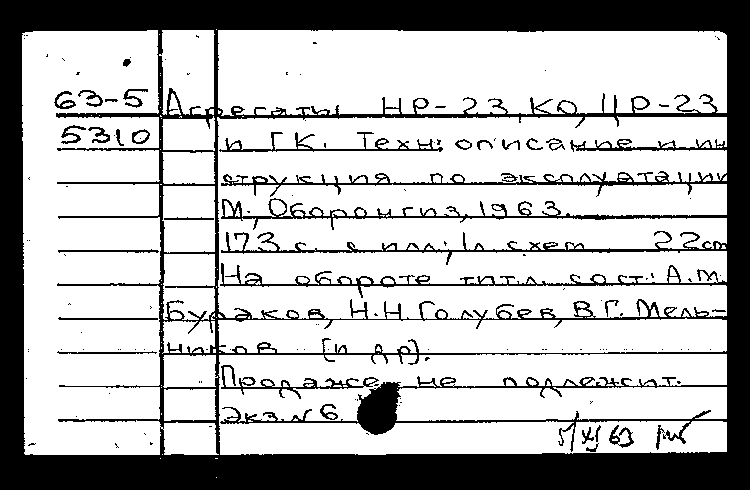 63-5 Агрегаты НР-23, КО, ЦР-23
5310 и ГК. Техн: описание и ин
струкция по эксплуатации
М., Оборонгиз, 1963.
173 с. с илл; 1л. схем 22 cm
На обороте титл. сост: А.М.
Бураков, Н.Н. Голубев, В.Г. Мель=
ников [и др].
Продаже не подлежит.
Экз. № 6
5/XI 63